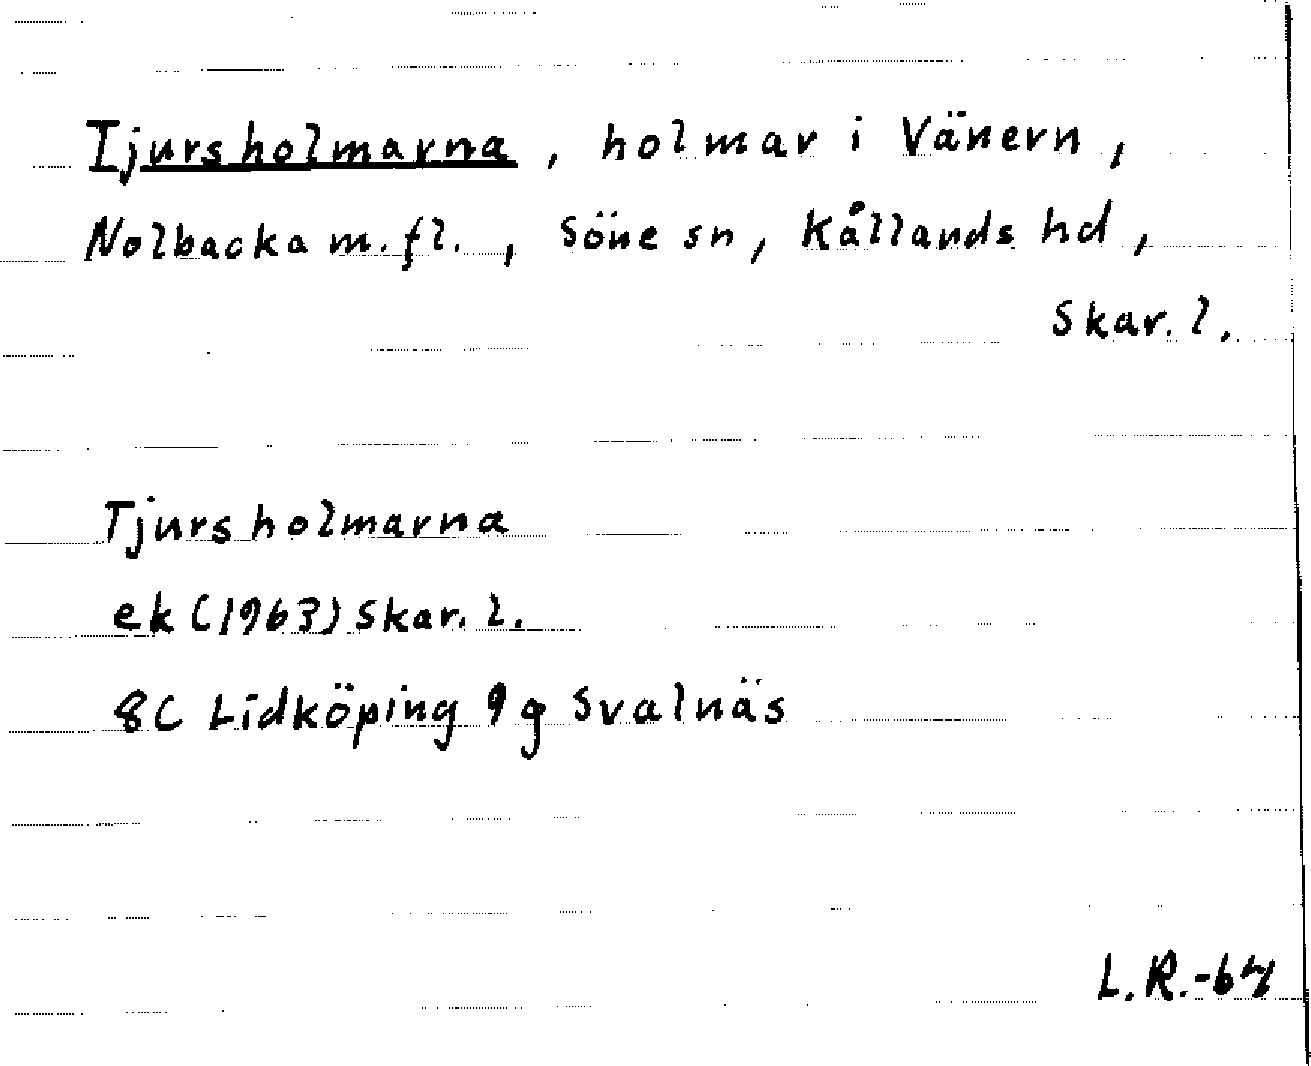 Tjursholmarna, holmar i Vänern,
Nolbacka m.fl., Söne sn, Kållands hd,
Skar. l.
Tjursholmarna
ek (1963) Skar. l.
8C Lidköping 9g Svalnäs
L.R.-64